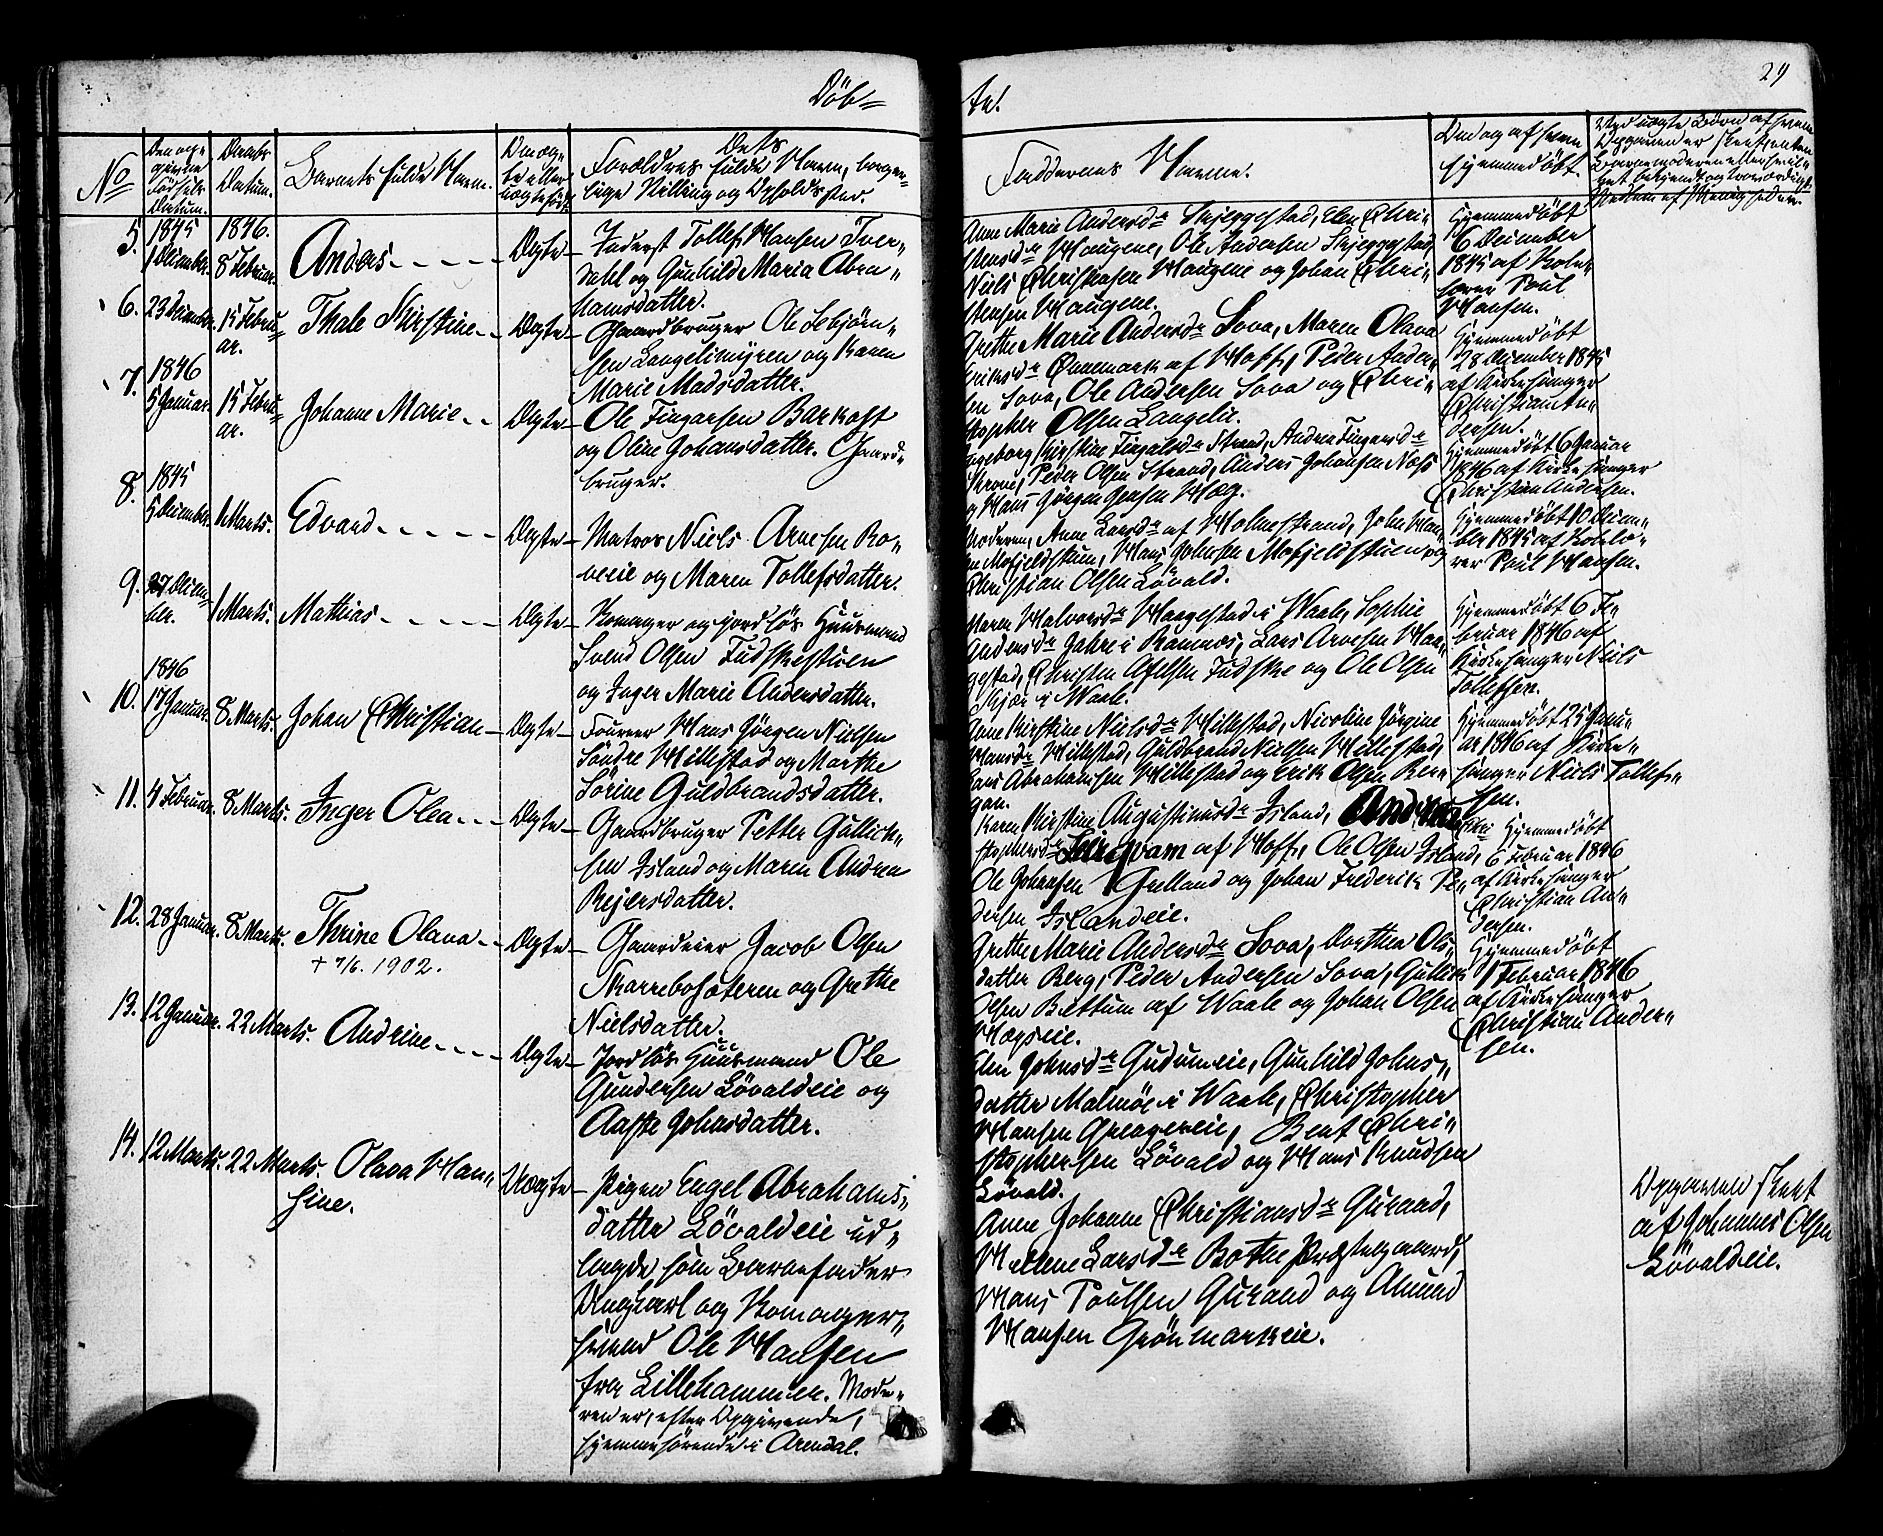 Döb=
te.
29
No
Den op-
givne
Födsels
Datum.
Daabs
Datum.
Barnets fulde Navn.
Om æg-
te eller
uægte født.
Dets
Forældres fulde Navn, borger-
lige Stilling og Opholds sted.
Faddernes Navne.
Om og af hvem
hjemmedöbt.
Ved uægte Börn af hvem
Opgaven er skeet
5.
1845
1 December.
1846.
8 Februar.
Anders
Ægte
Inderst Tollef Hansen Tver-
dahl og Gunhild Maria Abra-
hamsdatter.
Anne Marie Andersdr Skjeggestad, Elen Chri-
stensdr Haugene, Ole Andersen Skjeggestad,
Niels Christensen Haugene og Johan Chri-
stensen Haugene.
Hjemmedöbt
6 December
1845 af
Poul
Hansen.
6.
23 December.
15 Febru-
ar.
Thale Kirstine
Ægte
Gaardbruger Ole Sebjörn-
sen Langelimyren og Karen
Marie Madsdatter.
Grethe Marie Andersdr Sova, Maren Olava
Eriksdr af Hoff, Peder Ander-
sen Sova, Ole Andersen Sova og Chri-
stopher Olsen Langelie.
Hjemmedöbt
28 December 1845
af Kirkesanger
Christian An-
dersen.
7.
1846
5 Januar.
15 Febru-
ar.
Johanne Marie
Ægte
Ole Fingarsen Barkost
og Oline Johansdatter. Gaard-
bruger.
Ingeborg Kirstine Fingalsdr Strand, Andrea Fingarsdr
Krone, Peder Olsen Strand, Anders Johansen Næss
og Hans Jörgen Jensen Hæg.
Hjemmedöbt 6 Januar
1846 af Kirkesanger
Christian Andersen.
8.
1845
5 December.
1 Marts.
Edvard
Ægte
Matros Niels Arnesen Ro-
veeie og Maren Tollefsdatter.
Moderen, Anne Larsdr af Holmestrand, John Han-
sen Mofjeldstuen, Hans Johnsen Mofjeldstuen og
Christian Olsen Lövald.
Hjemmedöbt 10 Decem-
ber 1845 af
Poul Hansen.
9.
27 Decem-
ber.
1 Marts.
Mathias
Ægte
Skomager og jordlös Huusmand
Svend Olsen Fudskestuen
og Inger Marie Andersdatter.
Maren Halvorsdr Haugestad i Vaale, Sophie
Andersdr Jahre i Ramnæs, Lars Arvesen Hau-
gestad, Christen Axelsen Fudske og Ole Olsen
Skjær i Vaale.
Hjemmedöbt 6 Fe-
bruar 1846 af
Kirkesanger Niels
Tollefsen.
10.
1846
17 Januar.
8 Marts.
Johan Christian
Ægte
Foureer Hans Jörgen Nielsen
Söndre Hillestad og Marthe
Sörine Guldbrandsdatter.
Anne Kirstine Nielsdr Hillestad, Nicoline Jörgine
Hansdr Hillestad, Guldbrand Nielsen Hillestad,
Lars Abrahamsen Hillestad og Erik Olsen Ber-
gan.
Hjemmedöbt 25 Janu-
ar 1846 af Kirke-
sanger Niels Tollef-
sen.
11.
4 Februar.
8 Marts.
Inger Olea
Ægte
Gaardbruger Petter Gullich-
sen Island og Maren Andrea
Reiersdatter.
Karen Kirstine Augustinusdr Island, Andrea Chri-
stophersdr af Hoff, Ole Olsen Island,
Ole Johansen Grelland og Johan Frederik Pe-
dersen Islandeie.
Hjemmedöbt
6 Februar 1846
af Kirkesanger
Christian An-
dersen.
12.
28 Januar.
8 Marts.
Thrine Olava
+ 7/6. 1902.
Ægte
Gaardeier Jacob Olsen
Skarreboseteren og Grethe
Nielsdatter.
Grethe Marie Andersdr Sova, Dorthea Ols-
datter Berg, Peder Andersen Sova, Gullik
Olsen Bettum af Vaale og Johan Olsen
Hægseie.
Hjemmedöbt
1 Februar 1846
af Kirkesanger
Christian Ander-
sen.
13.
12 Januar.
22 Marts.
Andrine
Ægte
Jordlös Huusmand Ole
Gundersen Lövaldeie og
Aaste Johnsdatter.
Elen Johnsdr Gudumeie, Gunhild Johns-
datter Malmöe i Vaale, Christopher
Hansen Greagereie, Bent Chri-
stophersen Lövald og Hans Knudsen
Lövald.
14.
12 Marts.
22 Marts.
Olava Han-
sine.
Uægte
Pigen Engel Abrahams-
datter Lövaldeie ud-
lagde som Barnefader
Ungkarl og Skomager-
svend Ole Hansen
fra Lillehammer. Mode-
ren er, efter Opgivende,
hjemmehörende i Arendal.
Anne Johanne Christiansdr Gurand,
Helene Larsdr Bothe Præstegaard,
Hans Poulsen Gurand og Amund
Hansen Grönmarkeie.
Opgaven skeet
af Johannes Olsen
Lövaldeie.